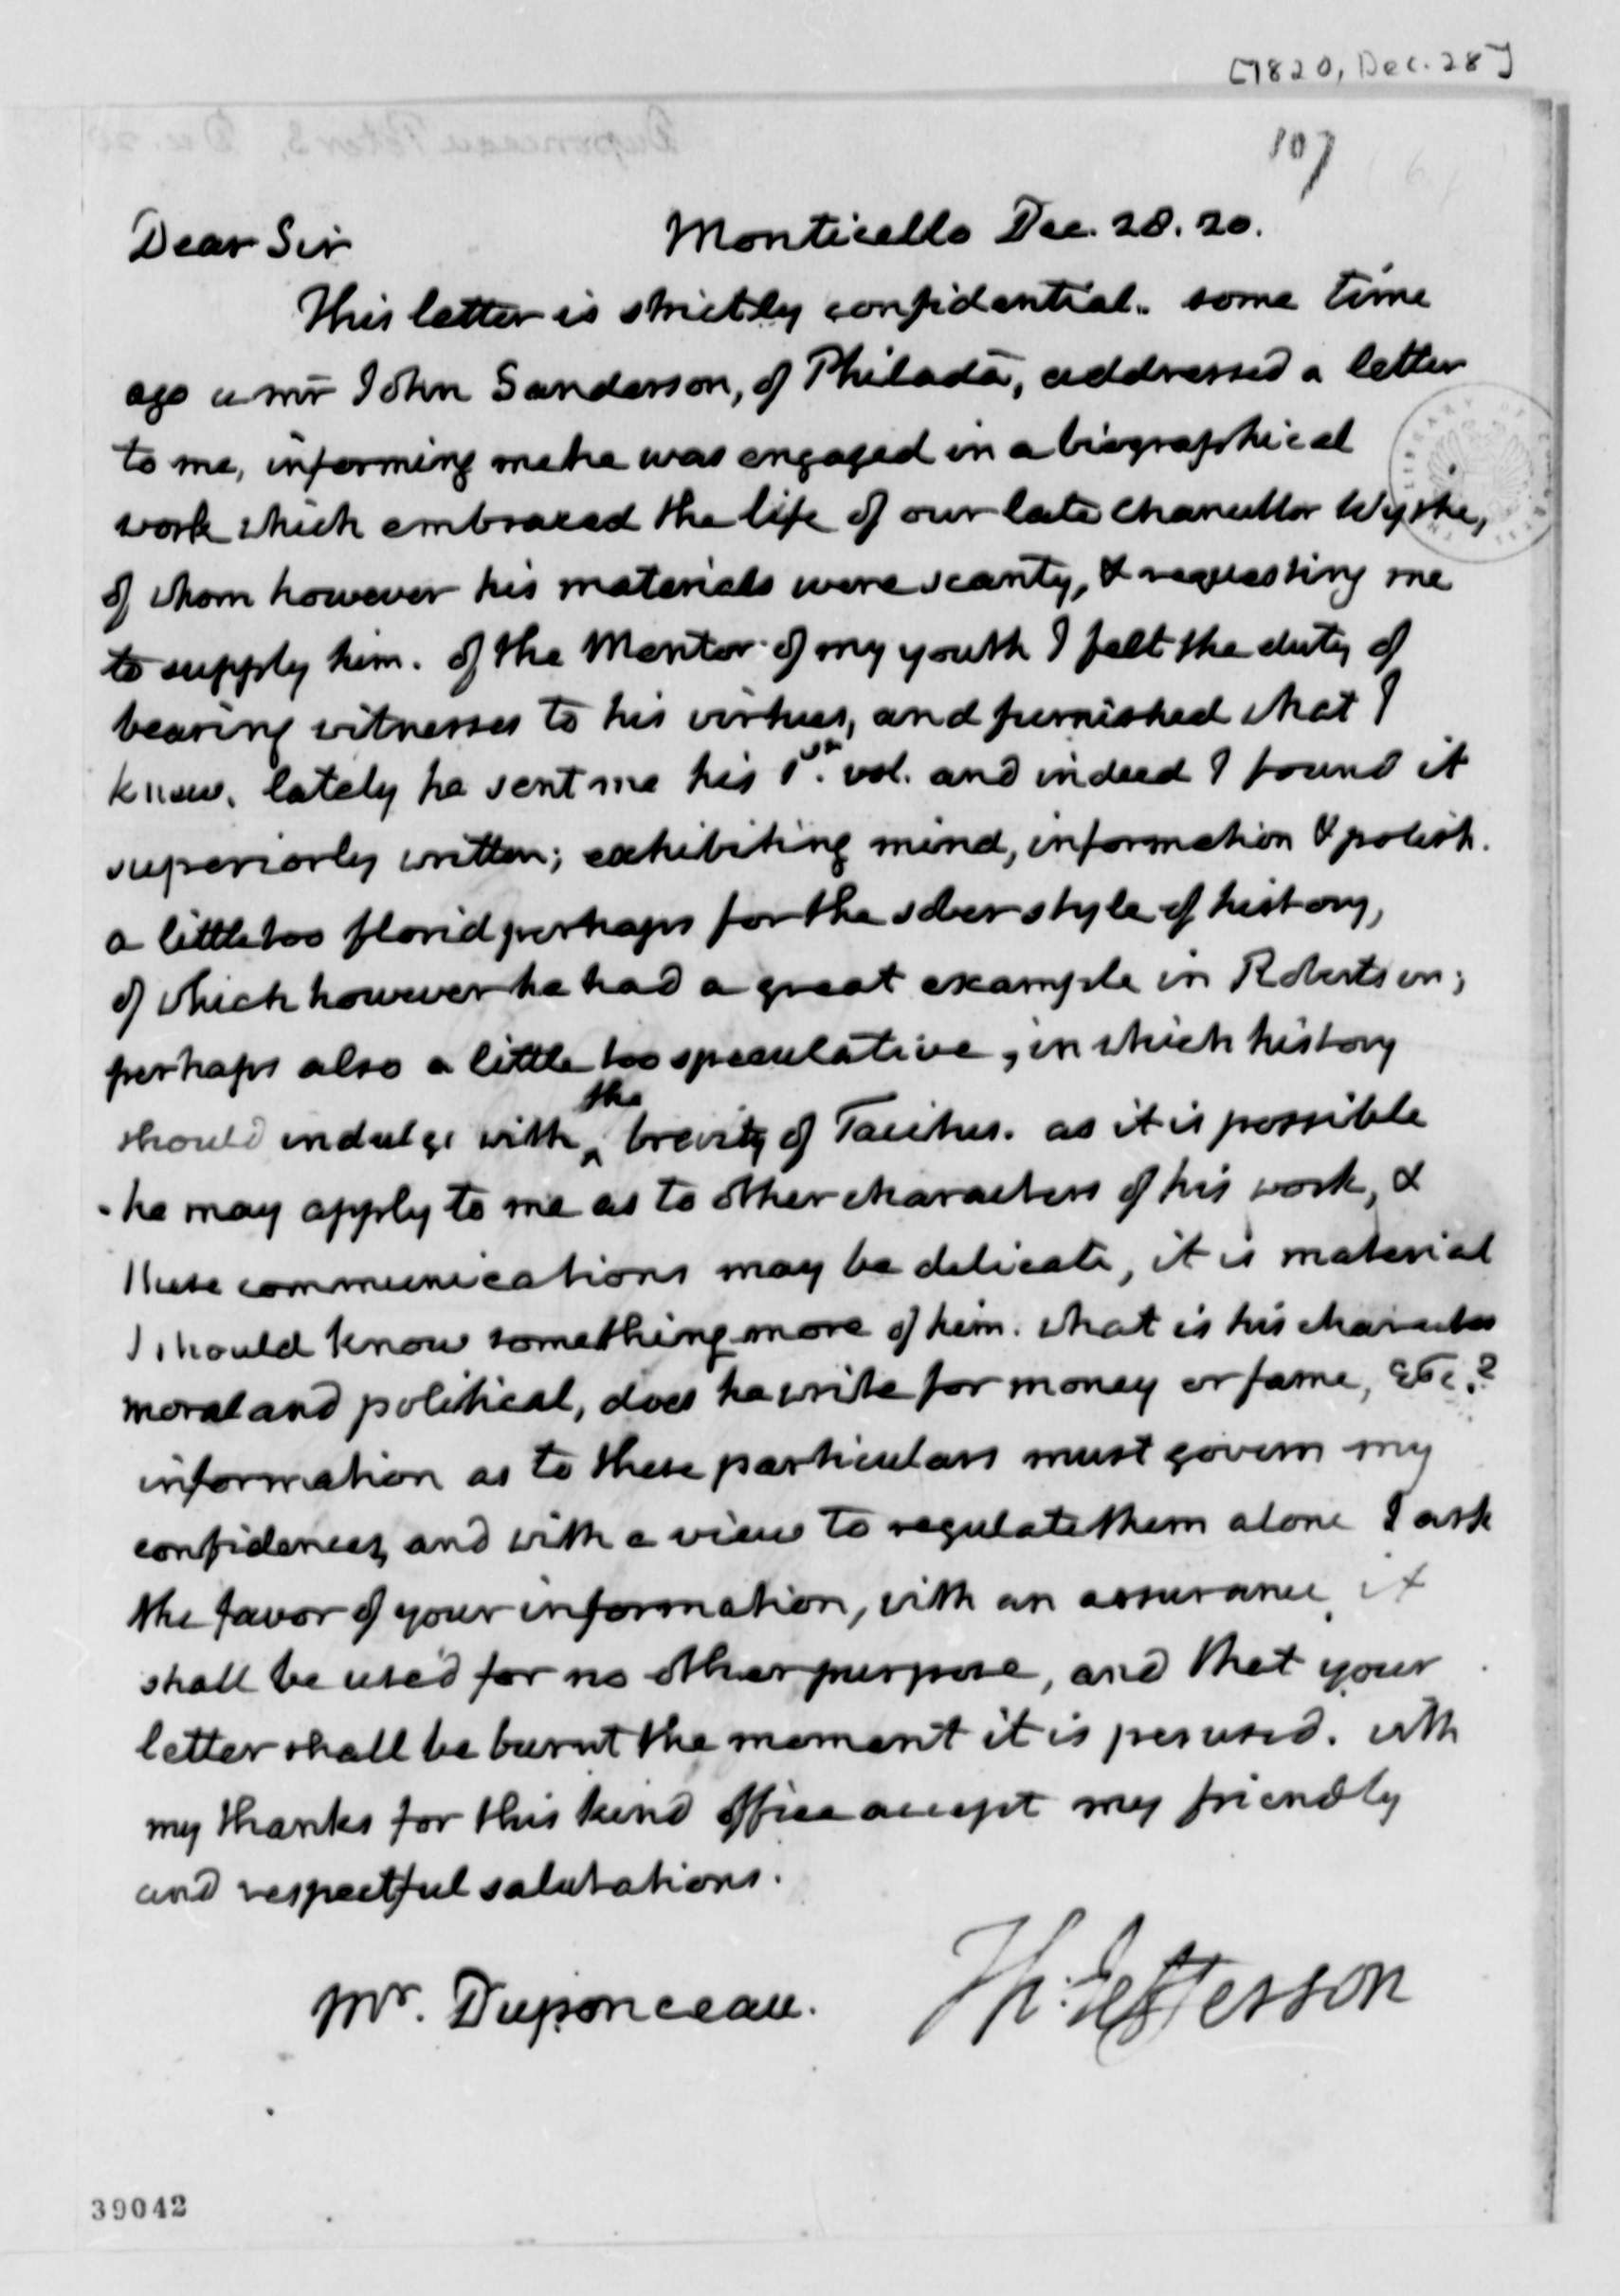 [1820, Dec. 28]
107
Monticello Dec. 28. 20.
Dear Sir
This letter is strictly confidential. some time
ago a mr John Sanderson, of Philada, addressed a letter
to me, informing me he was engaged in a biographical
work which embraced the life of our late Chancellor Wythe,
of whom however his materials were scanty, & requesting me
to supply him. of the Mentor of my youth I felt the duty of
bearing witnesses to his virtues, and furnished what I
knew. lately he sent me his 1st. vol. and indeed I found it
superiorly written; exhibiting mind, information & polish.
a little too florid perhaps for the sober style of history,
of which however he had a great example in Robertson;
perhaps also a little too speculative, in which history
should indulge with the brevity of Tacitus. as it is possible
he may apply to me as to other characters of his work, &
these communications may be delicate, it is material
I should know something more of him. what is his character
moral and political, does he write for money or fame, etc.?
information as to these particulars must govern my
confidences, and with a view to regulate them alone I ask
the favor of your information, with an assurance it
shall be used for no other purpose, and that your
letter shall be burnt the moment it is perused. with
my thanks for this kind office accept my friendly
and respectful salutations.
Th: Jefferson
Mr. Duponceau.
39042